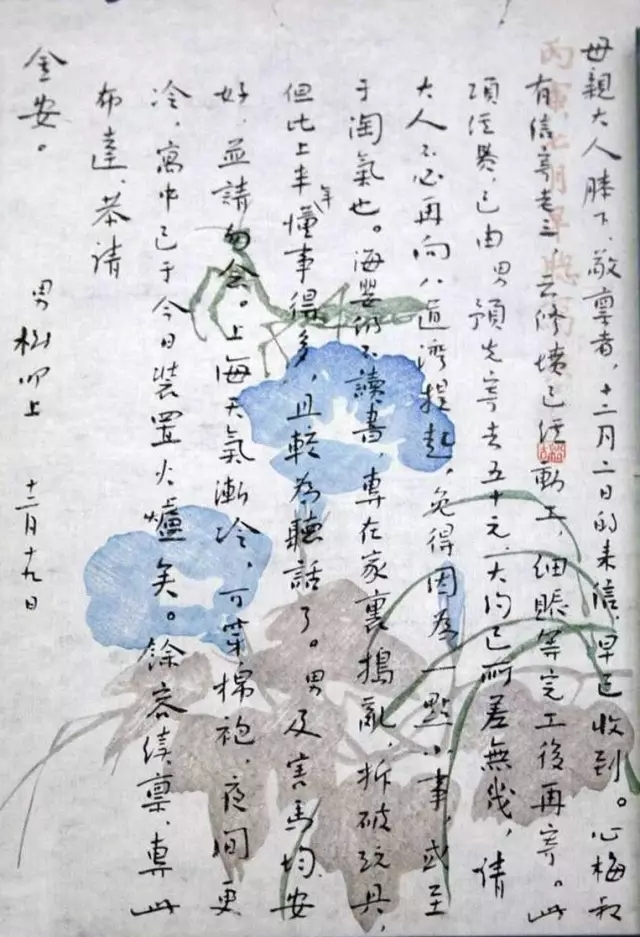 母親大人膝下、敬禀者，十二月二日的来信，早已收到。心梅叔
有信寄老三，云修墳已经動工，细賬等完工後再寄。此
項经费，已由男预先寄去五十元，大约已所差無幾，請
大人不必再向八道灣提起。免得因為一點小事，或至
于淘氣也。海嬰仍不讀書，專在家裏搗亂，拆破玩具，
但比上半年懂事得多，且較為聽話了。男及害馬均安
好，並請勿念。上海天氣漸冷，可穿棉袍，夜间更
冷，寓中已于今日裝置火爐矣。餘容续禀，專此
布達，恭請
金安。
男 树 叩上 十二月十九日
丙寅七月